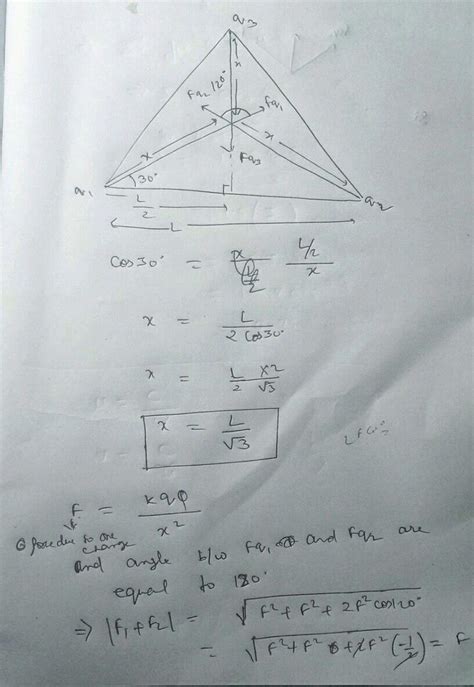 q3
x
Fq2 120°
Fq1
x
x
Fq3
30°
q1
L/2
q2
L
cos30° = x/ (L/2)/x
x = L/(2 cos30°)
x = L/2 × 2/√3
x = L/√3
F = kqQ/x²
force due to one
charge
and angle b/w Fq1 and Fq2 are
equal to 180°
⇒ |F1 + F2| = √(F² + F² + 2F² cos120°)
= √(F² + F² + 2F² (-1/2)) = F